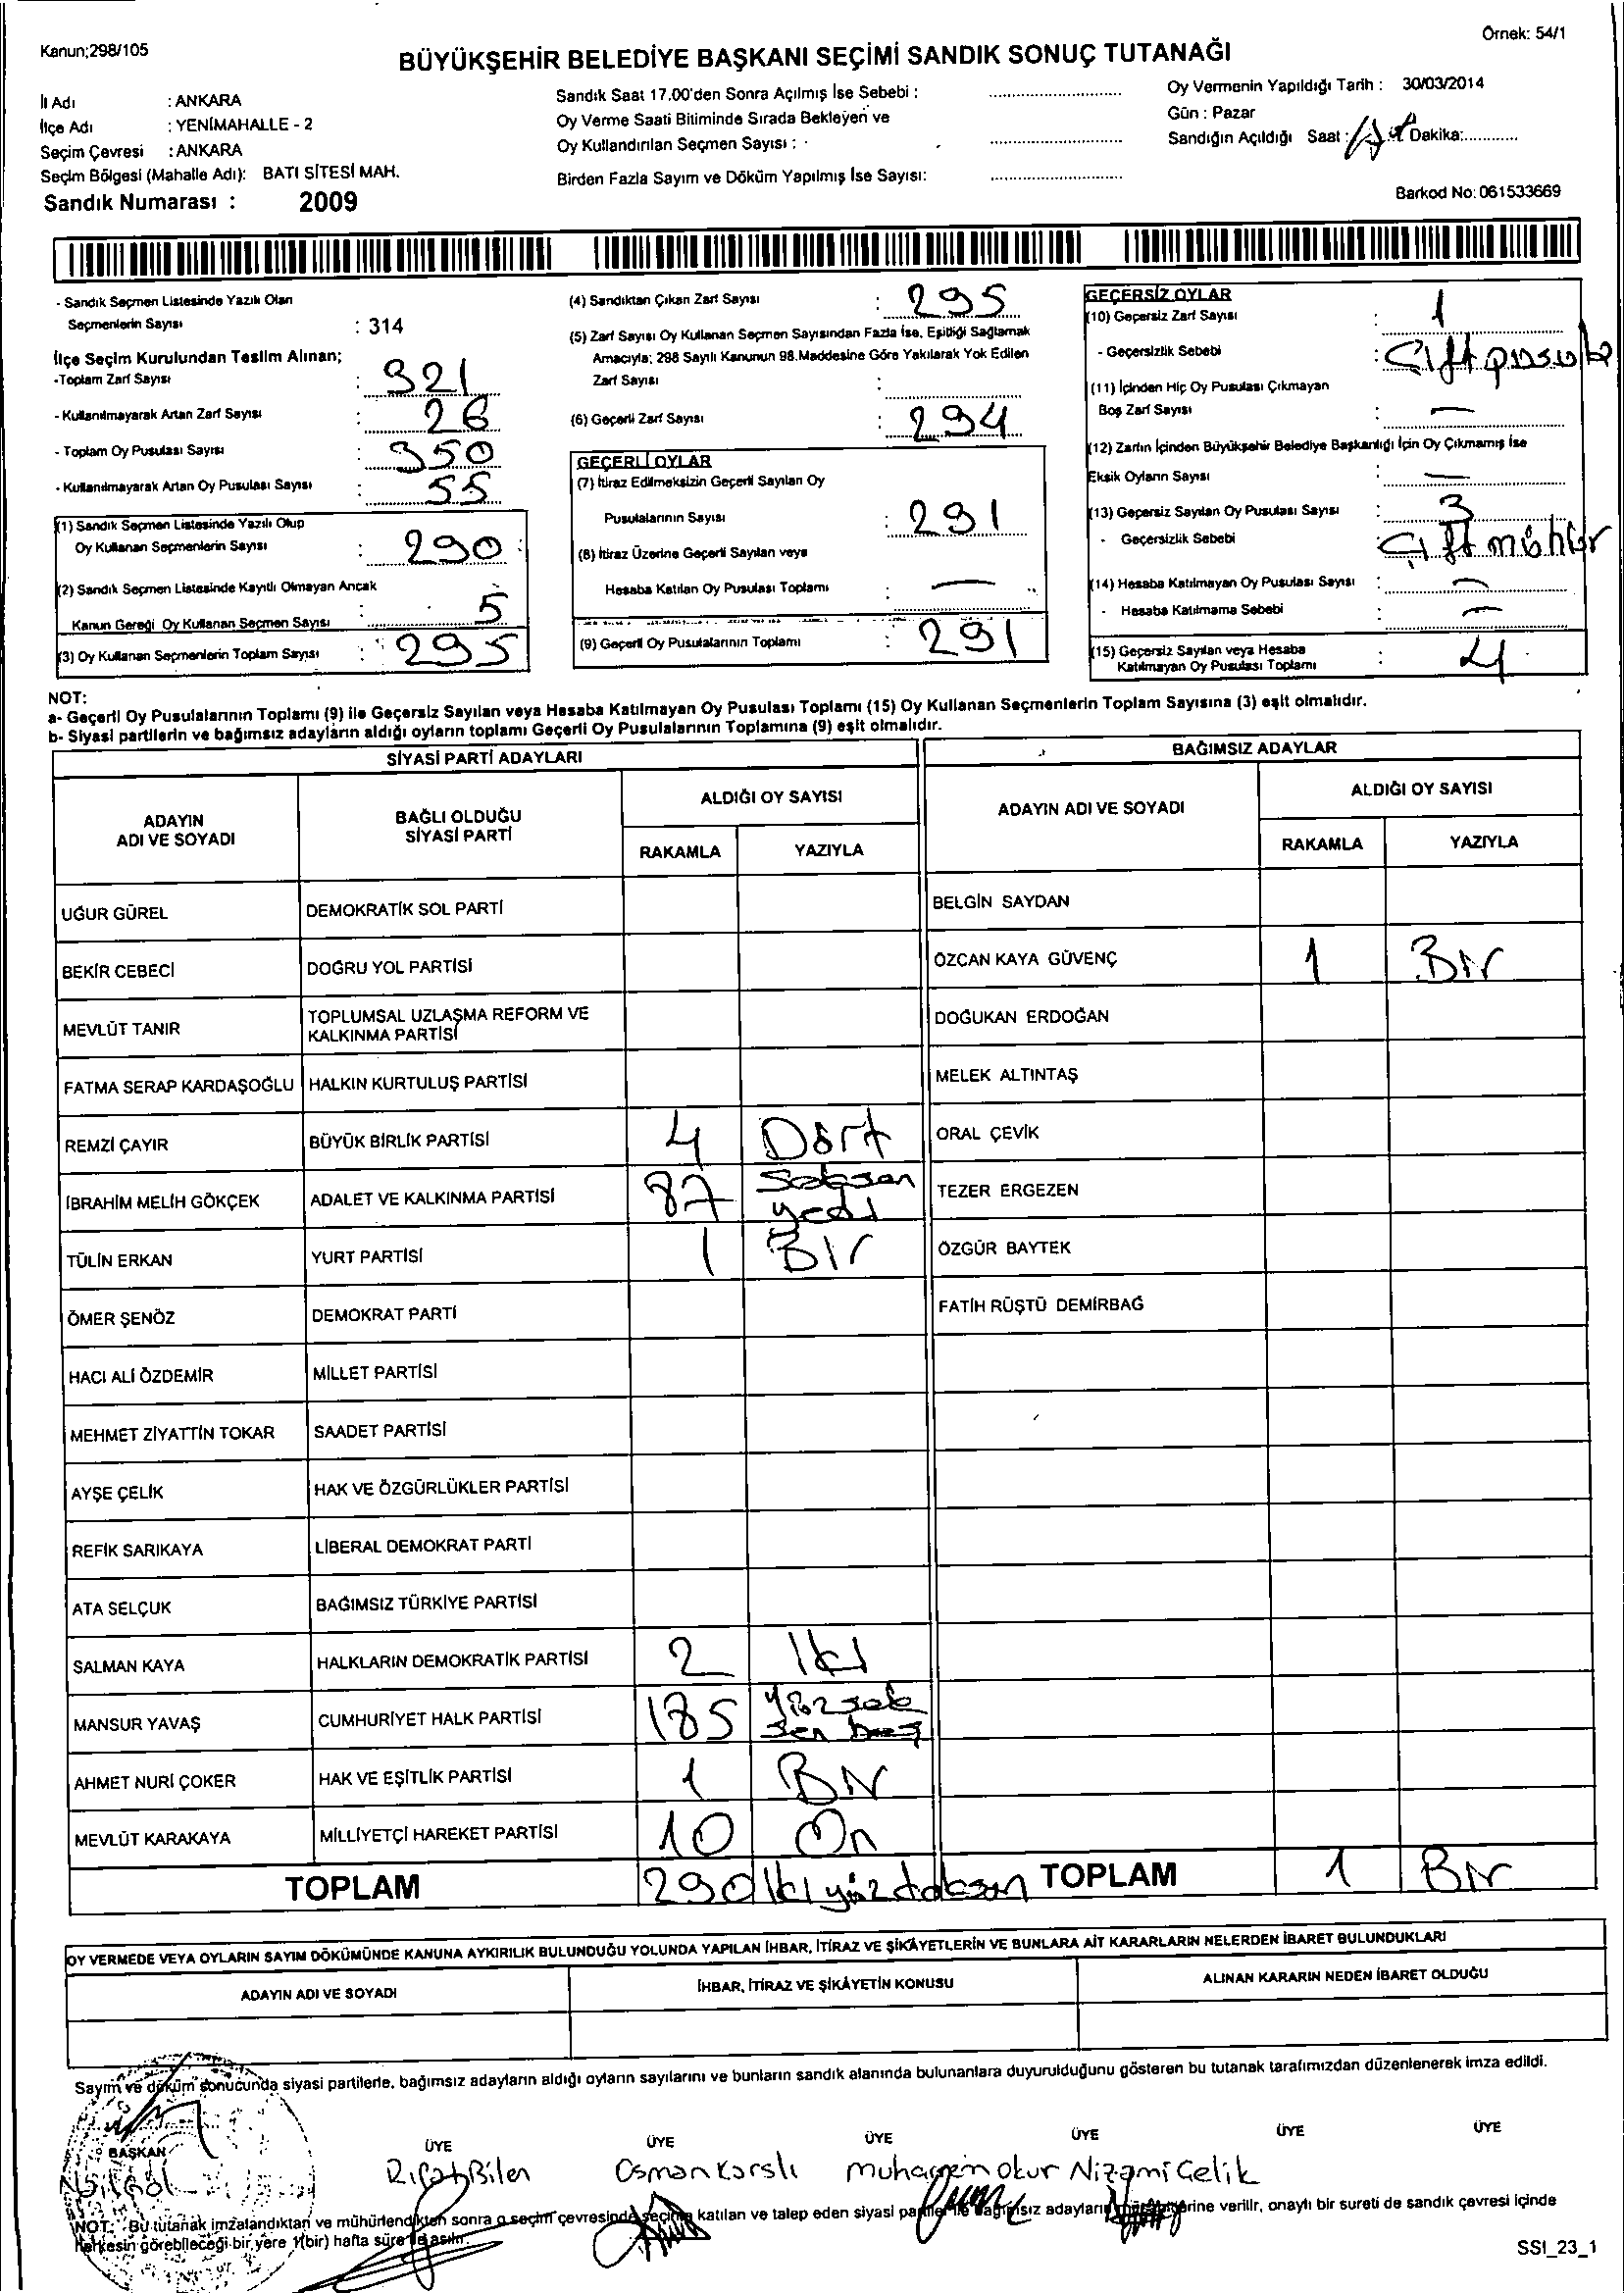 Kanun;298/105
Örnek: 54/1
BÜYÜKŞEHİR BELEDİYE BAŞKANI SEÇİMİ SANDIK SONUÇ TUTANAĞI
İl Adı : ANKARA
İlçe Adı : YENİMAHALLE - 2
Seçim Çevresi : ANKARA
Seçim Bölgesi (Mahalle Adı): BATI SİTESİ MAH.
Sandık Numarası : 2009
Sandık Saat 17.00'den Sonra Açılmış İse Sebebi :
Oy Verme Saati Bitiminde Sırada Bekleyen ve
Oy Kullandırılan Seçmen Sayısı :
Birden Fazla Sayım ve Döküm Yapılmış İse Sayısı:
Oy Vermenin Yapıldığı Tarih : 30/03/2014
Gün : Pazar
Sandığın Açıldığı Saat : Dakika:
Barkod No: 061533669
- Sandık Seçmen Listesinde Yazılı Olan
Seçmenlerin Sayısı : 314
İlçe Seçim Kurulundan Teslim Alınan;
-Toplam Zarf Sayısı : 321
- Kullanılmayarak Artan Zarf Sayısı : 26
- Toplam Oy Pusulası Sayısı : 350
- Kullanılmayarak Artan Oy Pusulası Sayısı : 55
(1) Sandık Seçmen Listesinde Yazılı Olup
Oy Kullanan Seçmenlerin Sayısı : 290
(2) Sandık Seçmen Listesinde Kayıtlı Olmayan Ancak
Kanun Gereği Oy Kullanan Seçmen Sayısı : 5
(3) Oy Kullanan Seçmenlerin Toplam Sayısı : 295
(4) Sandıktan Çıkan Zarf Sayısı : 295
(5) Zarf Sayısı Oy Kullanan Seçmen Sayısından Fazla İse, Eşitliği Sağlamak
Amacıyla; 298 Sayılı Kanunun 98.Maddesine Göre Yakılarak Yok Edilen
Zarf Sayısı :
(6) Geçerli Zarf Sayısı : 294
GEÇERLİ OYLAR
(7) İtiraz Edilmeksizin Geçerli Sayılan Oy
Pusulalarının Sayısı : 291
(8) İtiraz Üzerine Geçerli Sayılan veya
Hesaba Katılan Oy Pusulası Toplamı : —
(9) Geçerli Oy Pusulalarının Toplamı : 291
GEÇERSİZ OYLAR
(10) Geçersiz Zarf Sayısı : 1
- Geçersizlik Sebebi : Çift pusula
(11) İçinden Hiç Oy Pusulası Çıkmayan
Boş Zarf Sayısı : —
(12) Zarfın İçinden Büyükşehir Belediye Başkanlığı İçin Oy Çıkmamış İse
Eksik Oyların Sayısı : —
(13) Geçersiz Sayılan Oy Pusulası Sayısı : 3
- Geçersizlik Sebebi : Çift mühür
(14) Hesaba Katılmayan Oy Pusulası Sayısı : —
- Hesaba Katılmama Sebebi : —
(15) Geçersiz Sayılan veya Hesaba
Katılmayan Oy Pusulası Toplamı : 4
NOT:
a- Geçerli Oy Pusulalarının Toplamı (9) ile Geçersiz Sayılan veya Hesaba Katılmayan Oy Pusulası Toplamı (15) Oy Kullanan Seçmenlerin Toplam Sayısına (3) eşit olmalıdır.
b- Siyasi partilerin ve bağımsız adayların aldığı oyların toplamı Geçerli Oy Pusulalarının Toplamına (9) eşit olmalıdır.
SİYASİ PARTİ ADAYLARI
ADAYIN ADI VE SOYADI
BAĞLI OLDUĞU SİYASİ PARTİ
ALDIĞI OY SAYISI
RAKAMLA YAZIYLA
UĞUR GÜREL DEMOKRATİK SOL PARTİ
BEKİR CEBECİ DOĞRU YOL PARTİSİ
MEVLÜT TANIR TOPLUMSAL UZLAŞMA REFORM VE KALKINMA PARTİSİ
FATMA SERAP KARDAŞOĞLU HALKIN KURTULUŞ PARTİSİ
REMZİ ÇAYIR BÜYÜK BİRLİK PARTİSİ 4 Dört
İBRAHİM MELİH GÖKÇEK ADALET VE KALKINMA PARTİSİ 87 Seksen yedi
TÜLİN ERKAN YURT PARTİSİ 1 Bir
ÖMER ŞENÖZ DEMOKRAT PARTİ
HACI ALİ ÖZDEMİR MİLLET PARTİSİ
MEHMET ZİYATTİN TOKAR SAADET PARTİSİ
AYŞE ÇELİK HAK VE ÖZGÜRLÜKLER PARTİSİ
REFİK SARIKAYA LİBERAL DEMOKRAT PARTİ
ATA SELÇUK BAĞIMSIZ TÜRKİYE PARTİSİ
SALMAN KAYA HALKLARIN DEMOKRATİK PARTİSİ 2 İki
MANSUR YAVAŞ CUMHURİYET HALK PARTİSİ 185 Yüz sek sen beş
AHMET NURİ ÇOKER HAK VE EŞİTLİK PARTİSİ 1 Bir
MEVLÜT KARAKAYA MİLLİYETÇİ HAREKET PARTİSİ 10 On
TOPLAM 290 İki yüz doksan
BAĞIMSIZ ADAYLAR
ADAYIN ADI VE SOYADI
ALDIĞI OY SAYISI
RAKAMLA YAZIYLA
BELGİN SAYDAN
ÖZCAN KAYA GÜVENÇ 1 Bir
DOĞUKAN ERDOĞAN
MELEK ALTINTAŞ
ORAL ÇEVİK
TEZER ERGEZEN
ÖZGÜR BAYTEK
FATİH RÜŞTÜ DEMİRBAĞ
TOPLAM 1 Bir
OY VERMEDE VEYA OYLARIN SAYIM DÖKÜMÜNDE KANUNA AYKIRILIK BULUNDUĞU YOLUNDA YAPILAN İHBAR, İTİRAZ VE ŞİKÂYETLERİN VE BUNLARA AİT KARARLARIN NELERDEN İBARET BULUNDUKLARI
ADAYIN ADI VE SOYADI
İHBAR, İTİRAZ VE ŞİKÂYETİN KONUSU
ALINAN KARARIN NEDEN İBARET OLDUĞU
Sayım ve döküm sonucunda siyasi partilerle, bağımsız adayların aldığı oyların sayılarını ve bunların sandık alanında bulunanlara duyurulduğunu gösteren bu tutanak tarafımızdan düzenlenerek imza edildi.
BAŞKAN ÜYE ÜYE ÜYE ÜYE ÜYE ÜYE
Rıfat Bilen Osman Karslı Muharrem Okur Nizami Çelik
NOT: Bu tutanak imzalandıktan ve mühürlendikten sonra o seçim çevresinde seçime katılan ve talep eden siyasi partiler ile bağımsız adayların verilir, onaylı bir sureti de sandık çevresi içinde
herkesin görebileceği bir yere 1(bir) hafta süre ile asılır.
SSI_23_1